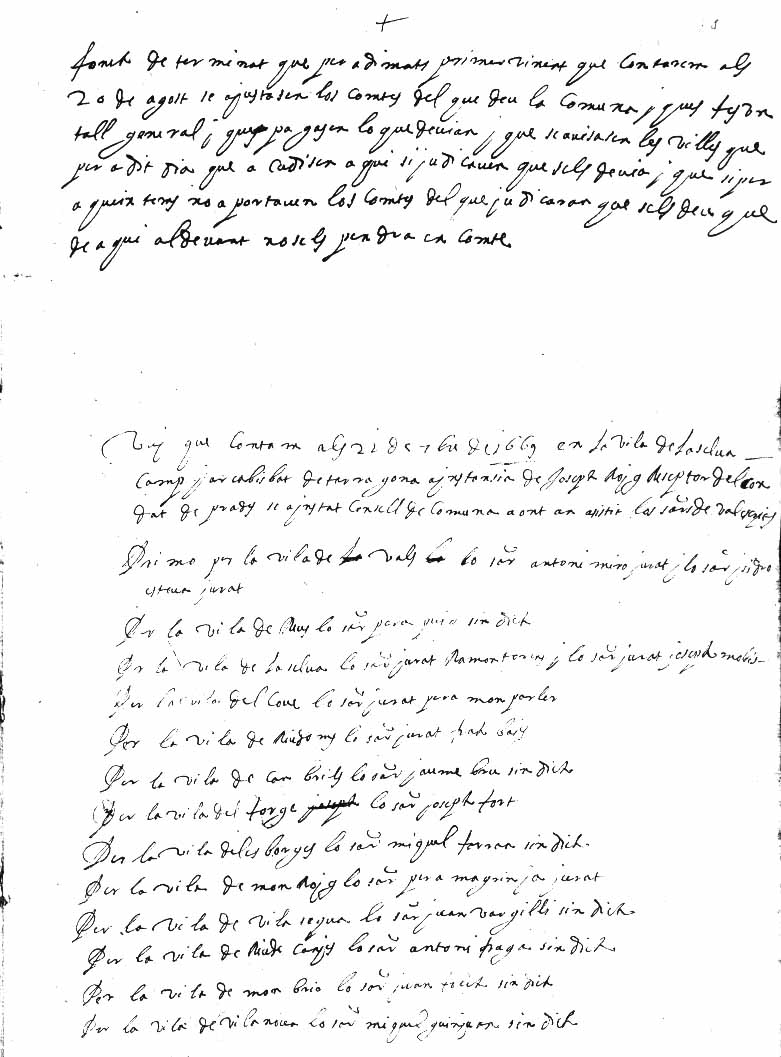 fonch determinat que per adimats primer vinent que contarem als
20 de agost se ajustasen los comtes del que deu la comuna j ques fes un
tall general j ques pagasen lo que devian j que se avisasen les villes que
per a dit dia que acudisen aqui si judicaven que sels devia j que si per
aquein tems no aportaven los comtes del que judicaran que sels deu que
de aqui al devant no sels pendra en comte
Vuj que contam als 21 de 7bre de 1669 en la vila de la selva
camp j archabisbat de terragona a instansia de Joseph Rojg Reseptor del con
dat de prades se ajustat consell de comuna aont an asistit los srs de
Primo per la vila de vals lo sr antoni miro jurat j lo sr jsidro
esteva jurat
Per la vila de Reus lo sr pera sindich
Per la vila de la selva lo sr jurat Ramon j lo sr jurat joseph
Per la vila del Cove lo sr jurat pera monparler
Per la vila de Riudoms lo sr jurat
Per la vila de cambrils lo sr jaume bru sindich
Per la vila del forge lo sr joseph fort
Per la vila deles borges lo sr miquel ferran sindich
Per la vila de monRojg lo sr pera magrinja jurat
Per la vila de vilasequa lo sr juan vergilli sindich
Per la vila de Riude canjes lo sr antoni fraga sindich
Per la vila de monbrio lo sr juan sindich
Per la vila de vilanova lo sr miquel sindich